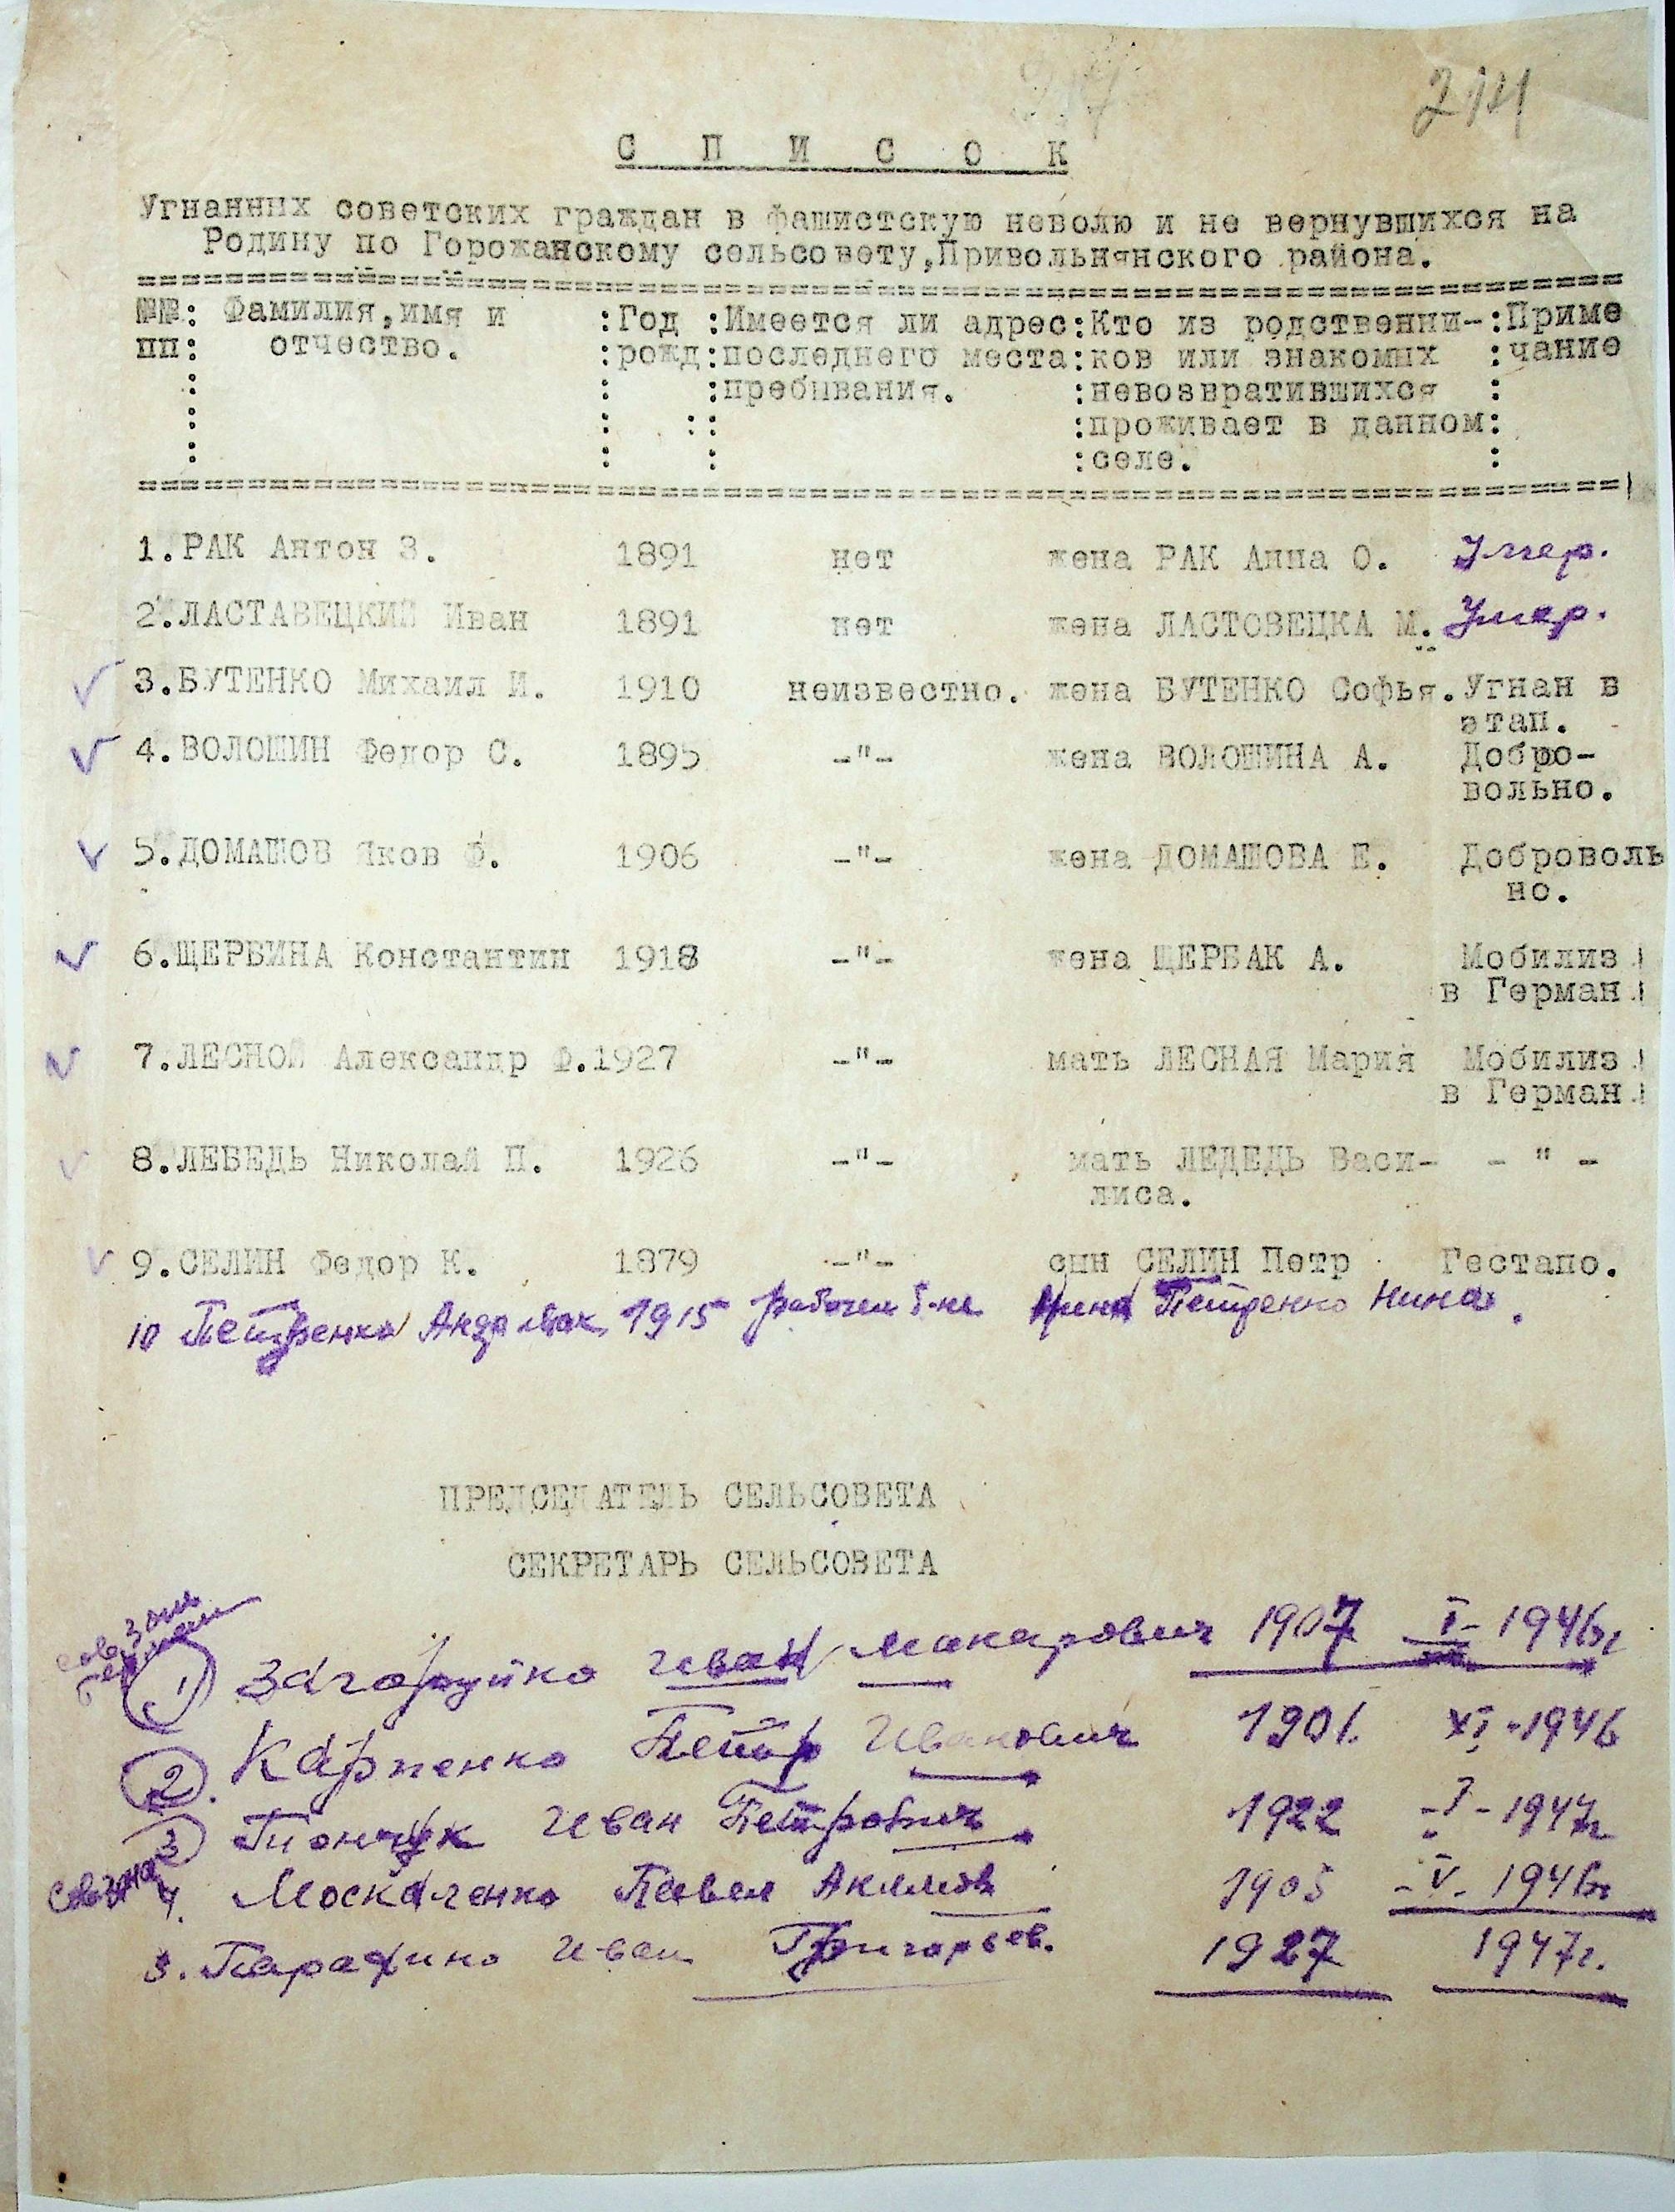 214
С П И С О К
Угнанных советских граждан в фашистскую неволю и не вернувшихся на
Родину по Горожанскому сельсовету,Привольнянского района.
№№: Фамилия,имя и :Год :Имеется ли адрес:Кто из родственни-:Приме
пп: отчество. :рожд:последнего места:ков или знакомых :чание
: : :пребывания. :невозвратившихся :
: : :: :проживает в данном:
: : : :селе. :
1.РАК Антон З. 1891 нет жена РАК Анна О. Умер.
2.ЛАСТАВЕЦКИЙ Иван 1891 нет жена ЛАСТОВЕЦКА М. Умер.
3.БУТЕНКО Михаил И. 1910 неизвестно. жена БУТЕНКО Софья. Угнан в
этап.
4.ВОЛОШИН Федор С. 1895 -"- жена ВОЛОШИНА А. Добро-
вольно.
5.ДОМАШОВ Яков Ф. 1906 -"- жена ДОМАШОВА Е. Доброволь
но.
6.ЩЕРБИНА Константин 1918 -"- жена ЩЕРБАК А. Мобилиз
в Герман
7.ЛЕСНОЙ Александр Ф.1927 -"- мать ЛЕСНАЯ Мария Мобилиз
в Герман
8.ЛЕБЕДЬ Николай П. 1926 -"- мать ЛЕДЕДЬ Васи- - " -
лиса.
9.СЕЛИН Федор К. 1879 -"- сын СЕЛИН Петр Гестапо.
10 Петренко 1915 Петренко Нина.
ПРЕДСЕДАТЕЛЬ СЕЛЬСОВЕТА
СЕКРЕТАРЬ СЕЛЬСОВЕТА
1) Загоруйко Иван Макарович 1907 I- 1946г
2. Карпенко Петр Иванович 1901. XI-1946
3 Тончук Иван Петрович 1922 -I- 1947г
4. Москаленко Павел Акимов 1905 -V- 1946г
5. Иван Григорьев. 1927 1947г.